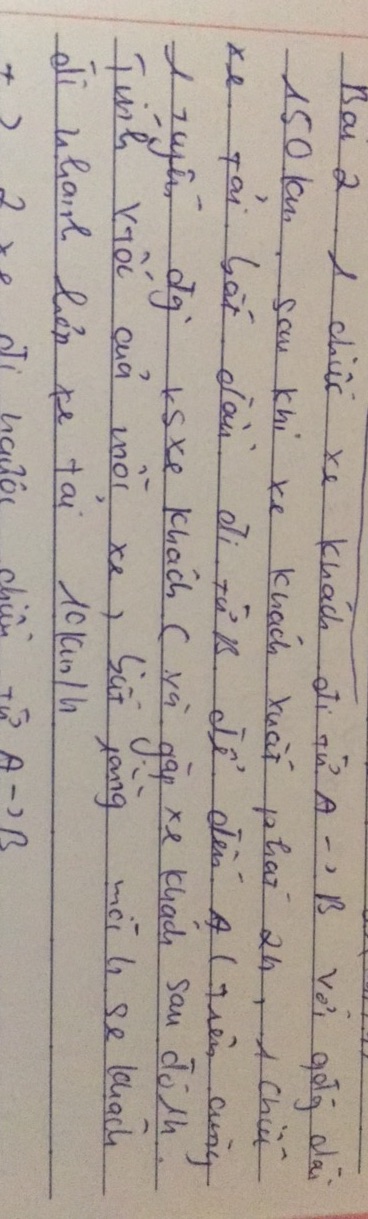 Bài 2 1 chiếc xe khách đi từ A → B với qđg dài
150km. sau khi xe khách xuất phát 2h, 1 chiếc
xe tải bắt đầu đi từ B để đến A (trên cùng
1 tuyến đg vs xe khách ( và gặp xe khách sau đó 1h.
Tính vtốc của mỗi xe, biết rằng mỗi h xe khách
đi nhanh hơn xe tải 10km/h
+) 2 xe đi ngược chiều từ A → B